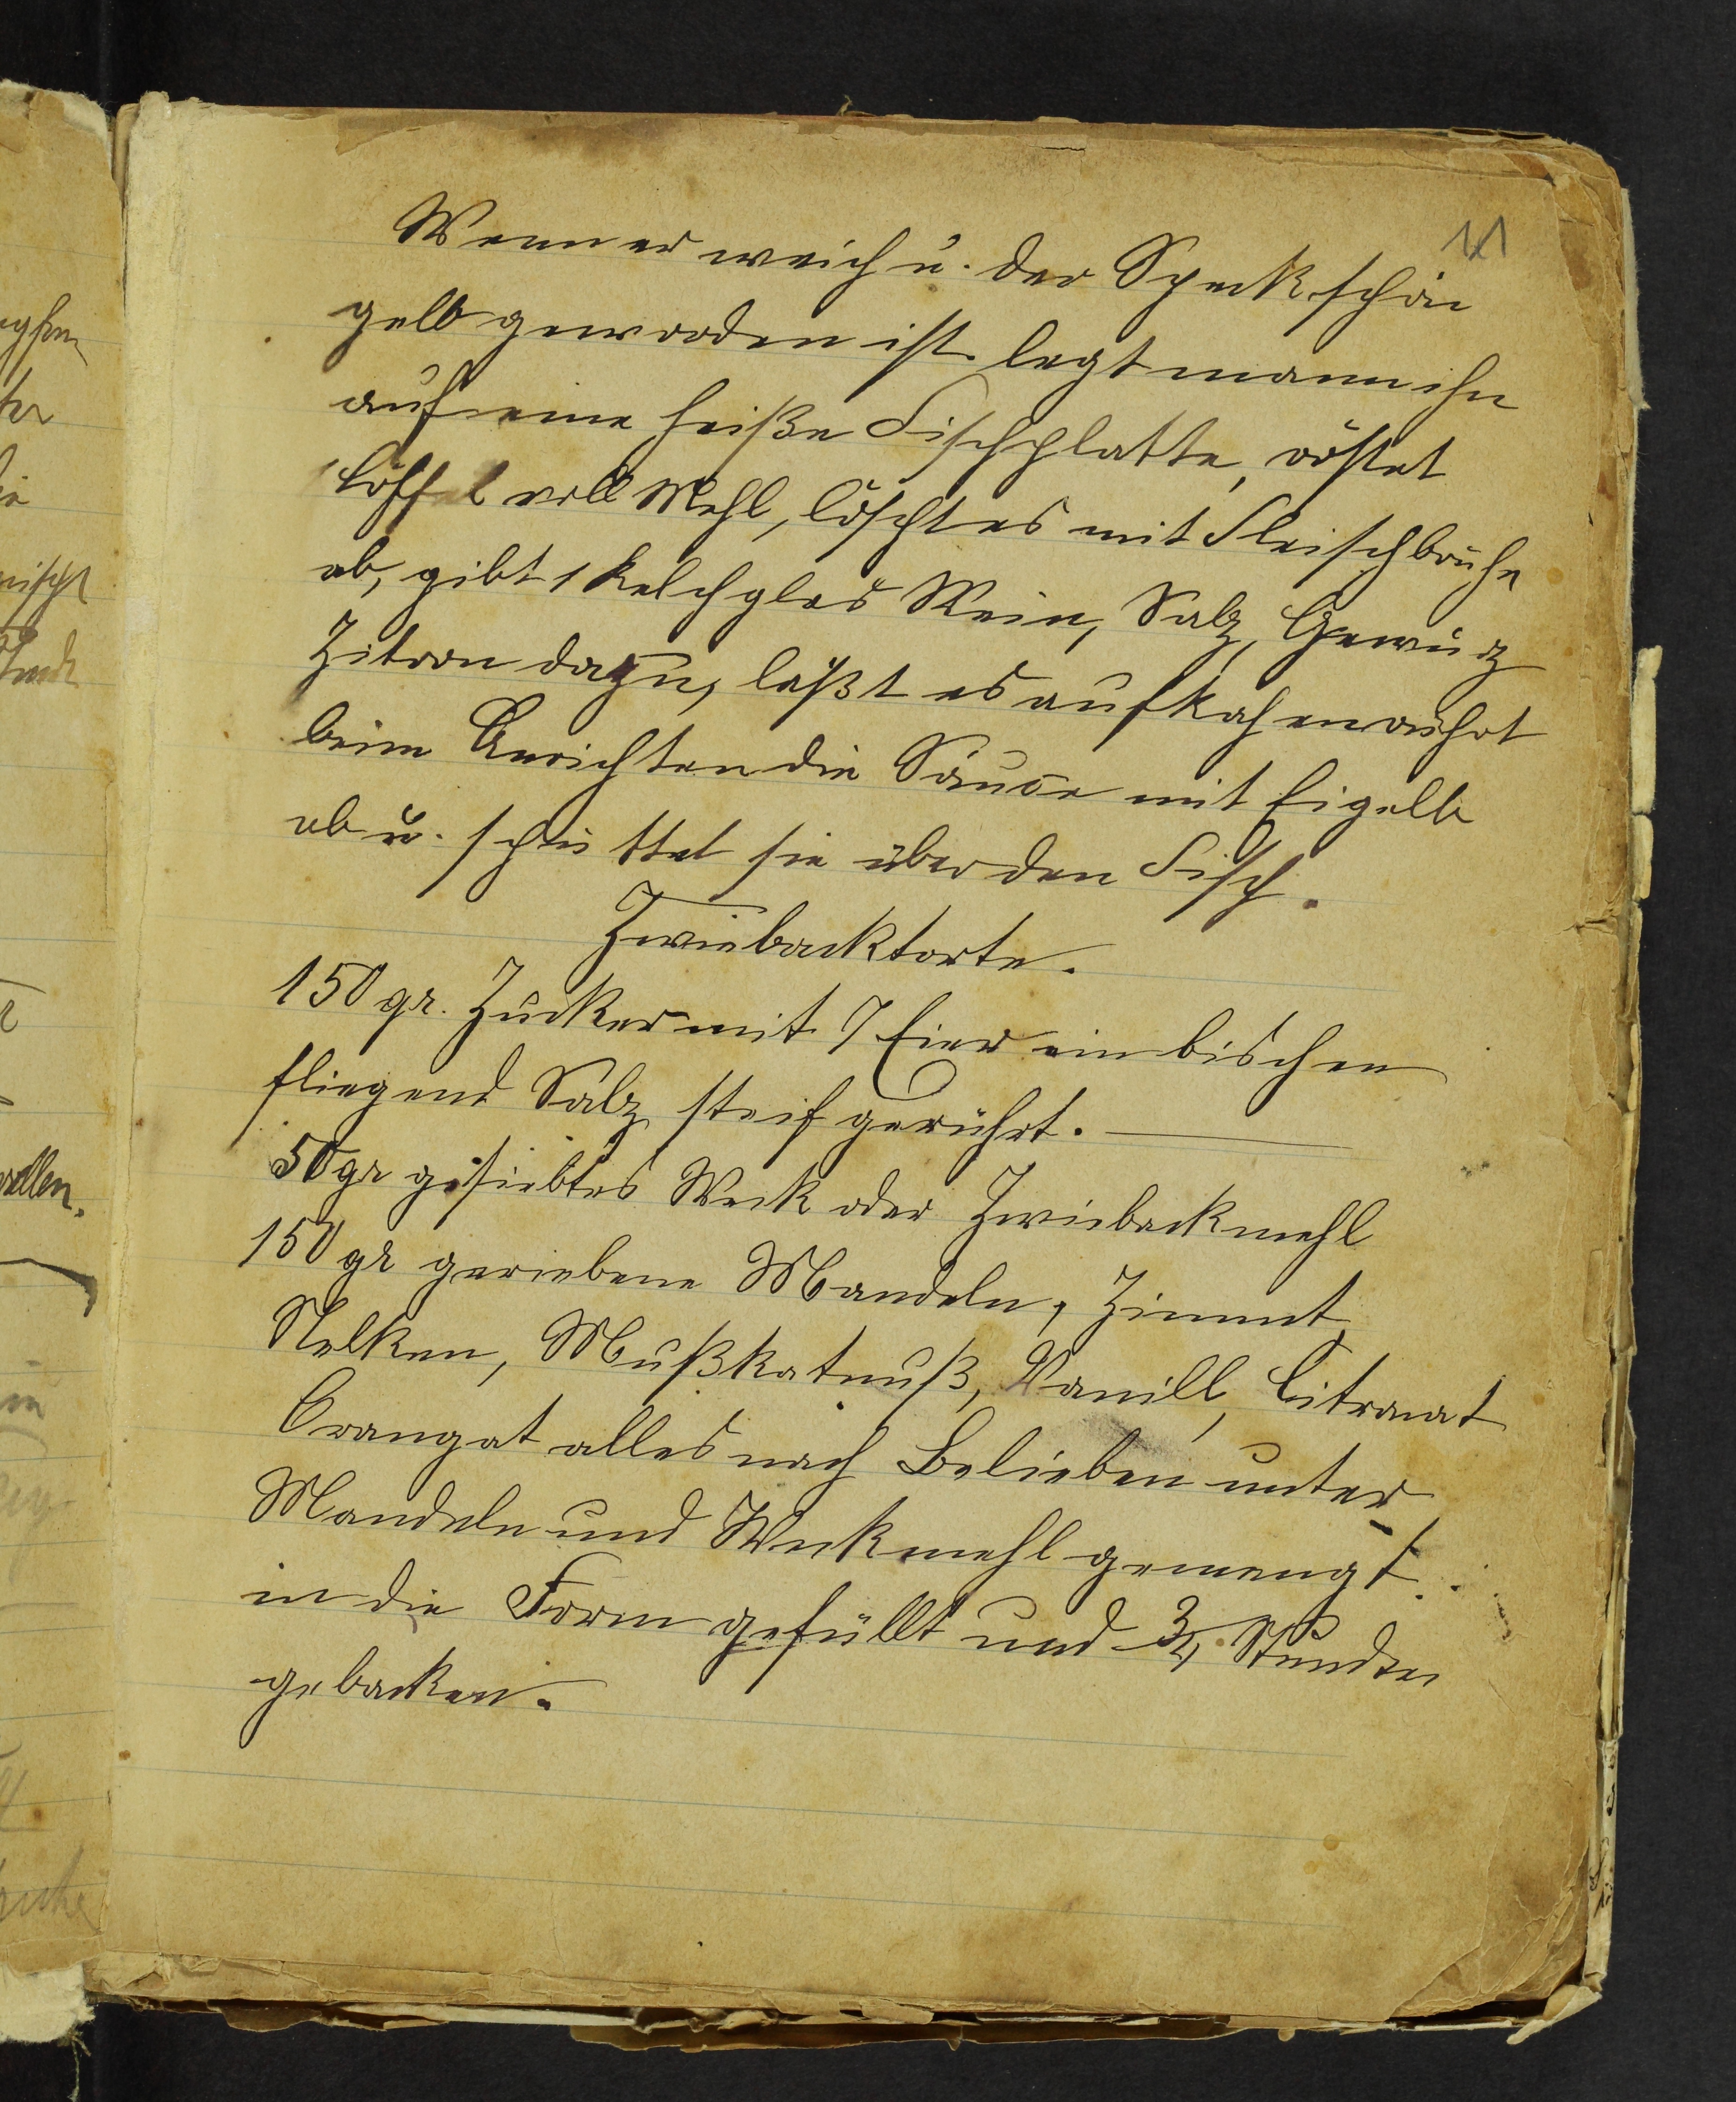 11
Wenn er weich u. der Speck schön
gelb geworden ist legt mann ihn
auf eine heiße Fischplatte, röstet
1 Löffel voll Mehl, löscht es mit Fleischbrühe
ab, gibt 1 Kelchglas Wein, Salz, Gewürz
Zitron dazu, läßt es aufkochen rührt
beim Anrichten die Sauce mit Eigelb
ab u. schüttet sie über den Fisch.
Zwiebacktorte.
150 gr. Zucker mit 7 Eier ein bischen
fliegend Salz steif gerührt.
50 gr gesiebtes Weck oder Zwiebackmehl
150 gr geriebene Mandeln, Zimmt,
Nelken, Mußkatnuß, Vanill, Citronat
Orangat alles nach Belieben unter
Mandeln und Weckmehl gemengt.
in die Form gefüllt und 3/4 Stunden
gebacken.